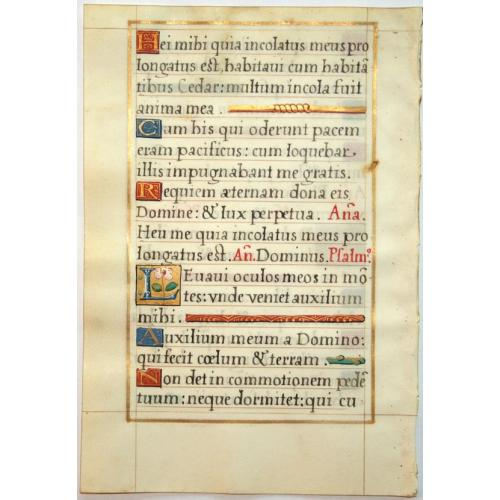 Hei mihi quia incolatus meus pro
longatus est, habitaui cum habitã
tibus Cedar: multum incola fuit
anima mea.
Cum his qui oderunt pacem
eram pacificus: cum loquebar
illis impugnabant me gratis.
Requiem æternam dona eis
Domine: & lux perpetua. Aña.
Heu me quia incolatus meus pro
longatus est. Añ. Dominus. Psalmꝰ.
LEuaui oculos meos in mõ
tes: vnde veniet auxilium
mihi.
Auxilium meum a Domino:
qui fecit cœlum & terram.
Non det in commotionem pedẽ
tuum: neque dormitet: qui cu